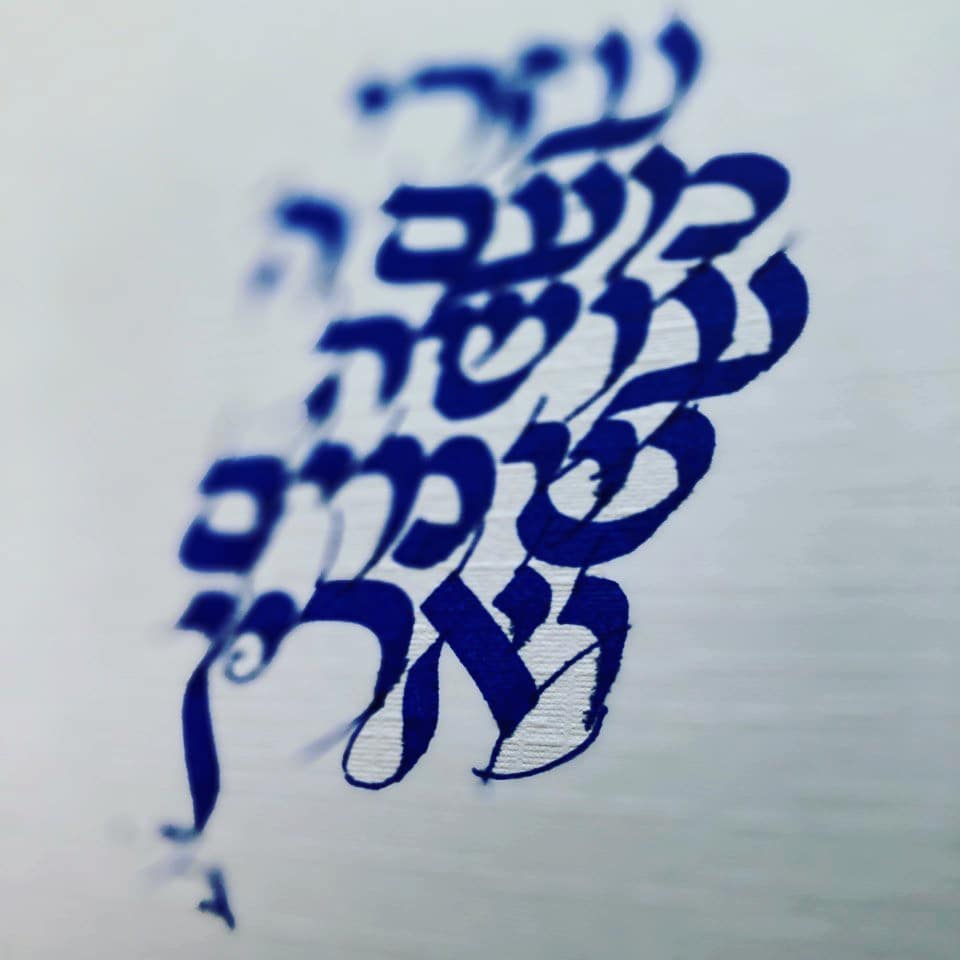 עזרי
מעם ה
עושה
שמים
וארץ